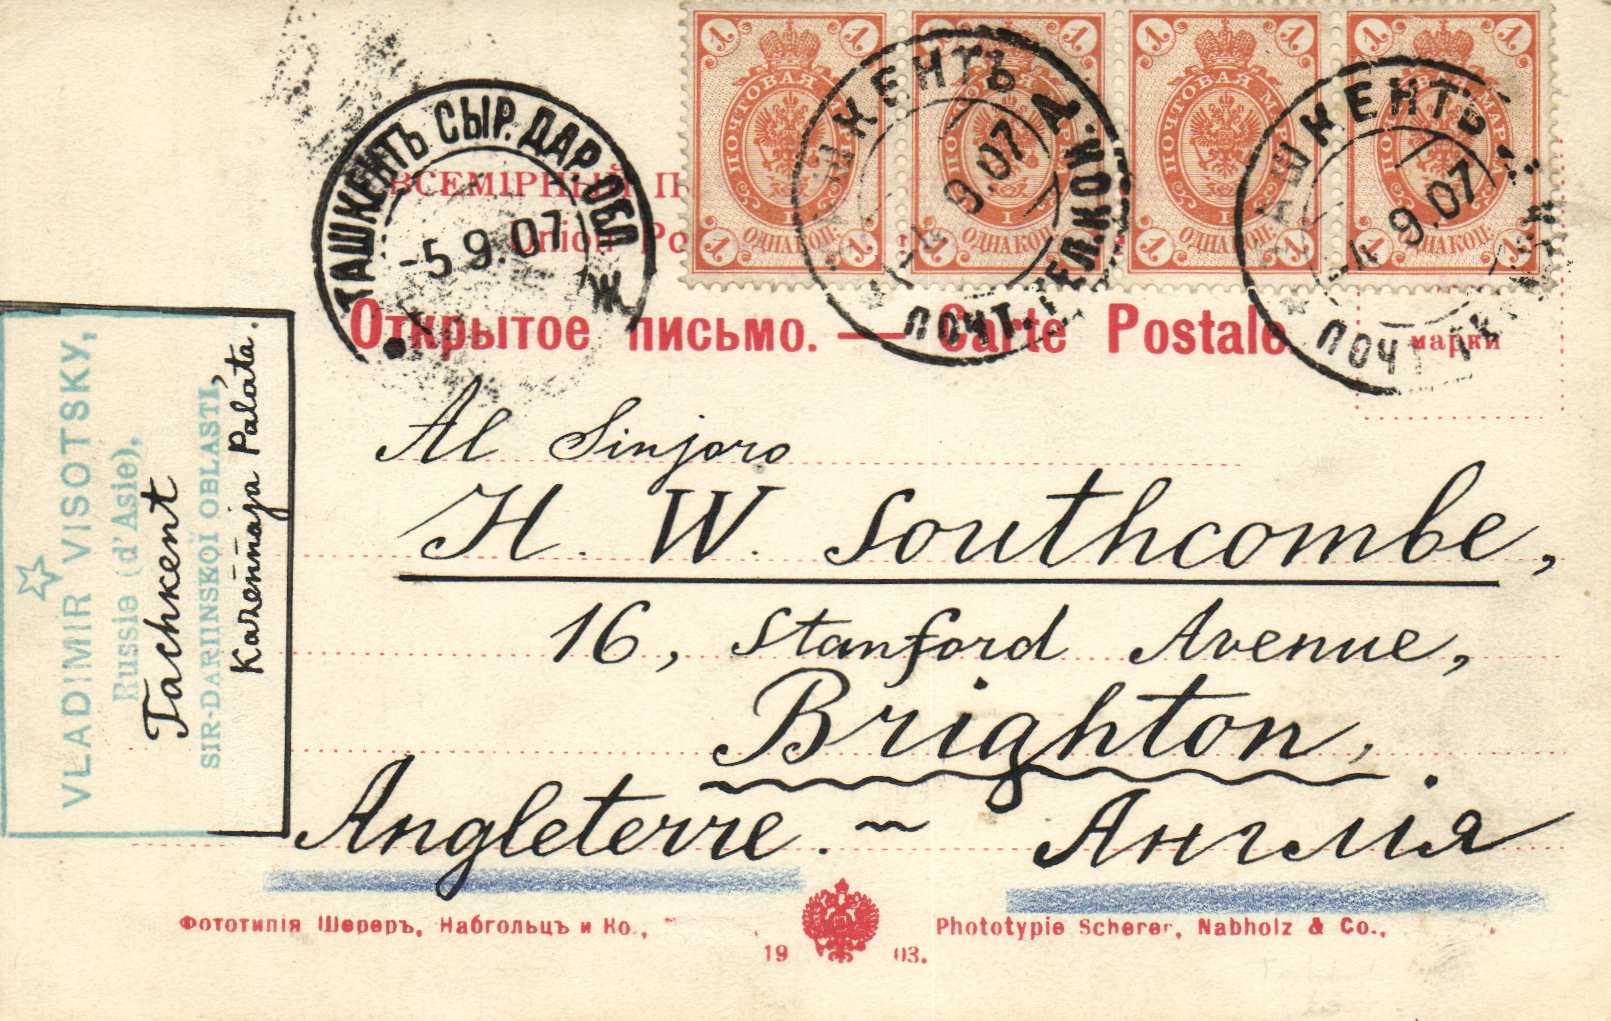 1 1 1 1 1 1 1 1
ПОЧТОВАЯ МАРКА
ПОЧТОВАЯ МАРКА
ПОЧТОВАЯ МАРКА
ПОЧТОВАЯ МАРКА
1 ОДНА КОП. 1
1 ОДНА КОП. 1
1 ОДНА КОП. 1
1 ОДНА КОП. 1
ТАШКЕНТЪ СЫР. ДАР. ОБЛ
-5 9.07
Ж
ТАШКЕНТЪ
-4 9.07
ПОЧТ.ТЕЛ.КОН.
ТАШКЕНТЪ
-4 9.07
ПОЧТ.
ВСЕМІРНЫЙ
Union
Открытое письмо. — Carte Postale.
марки
VLADIMIR VISOTSKY,
Russie (d'Asie),
Tachkent
SIR-DARIINSKOÏ OBLASTI,
Kazennaja Palata.
Al Sinjoro
H. W. Southcombe,
16, Stanford Avenue,
Brighton,
Angleterre. ~ Англія
Фототипія Шереръ, Набгольцъ и Ко.,
Phototypie Scherer, Nabholz & Co.,
19 03.